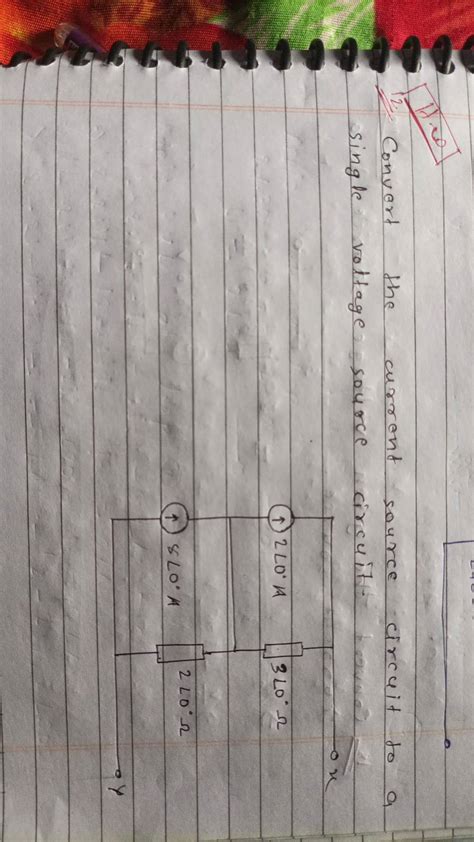 H.W
2. Convert the current source circuit to a
single voltage source circuit.
x
2∠0° A
3∠0° Ω
3∠0° A
2∠0° Ω
y